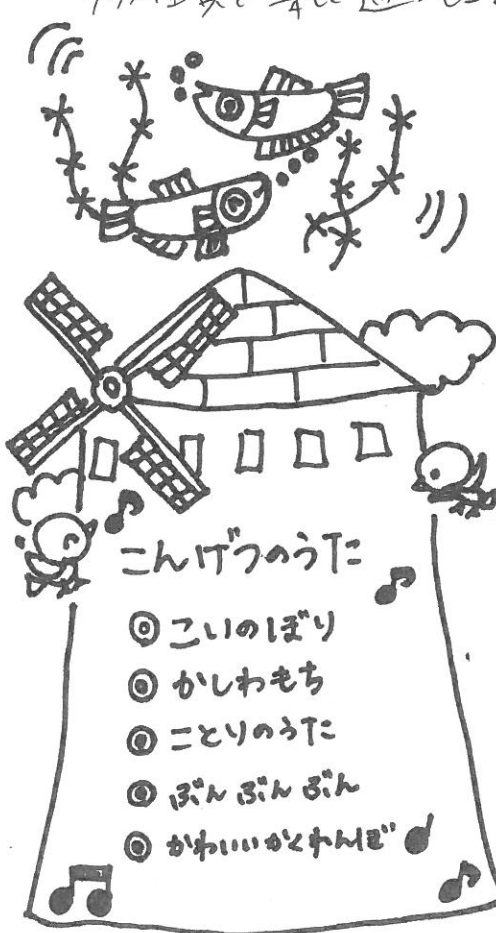 こんげつのうた
◎ こいのぼり
◎ かしわもち
◎ ことりのうた
◎ ぶんぶんぶん
◎ かわいいかくれんぼ